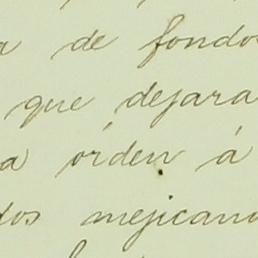 a de fondo
que dejara
a órden á
dos mejicano